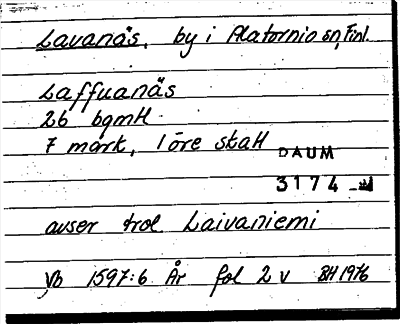 Lavanäs, by i Alatornio sn, Finl.
Laffuanäs
26 bgmH
7 mark, 1 öre skatt
DAUM
3174
avser trol Laivaniemi
Vb 1597:6 År fol 2 v BH 1976